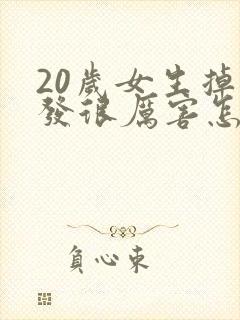 20歲女生掉
發很厲害怎
負心束